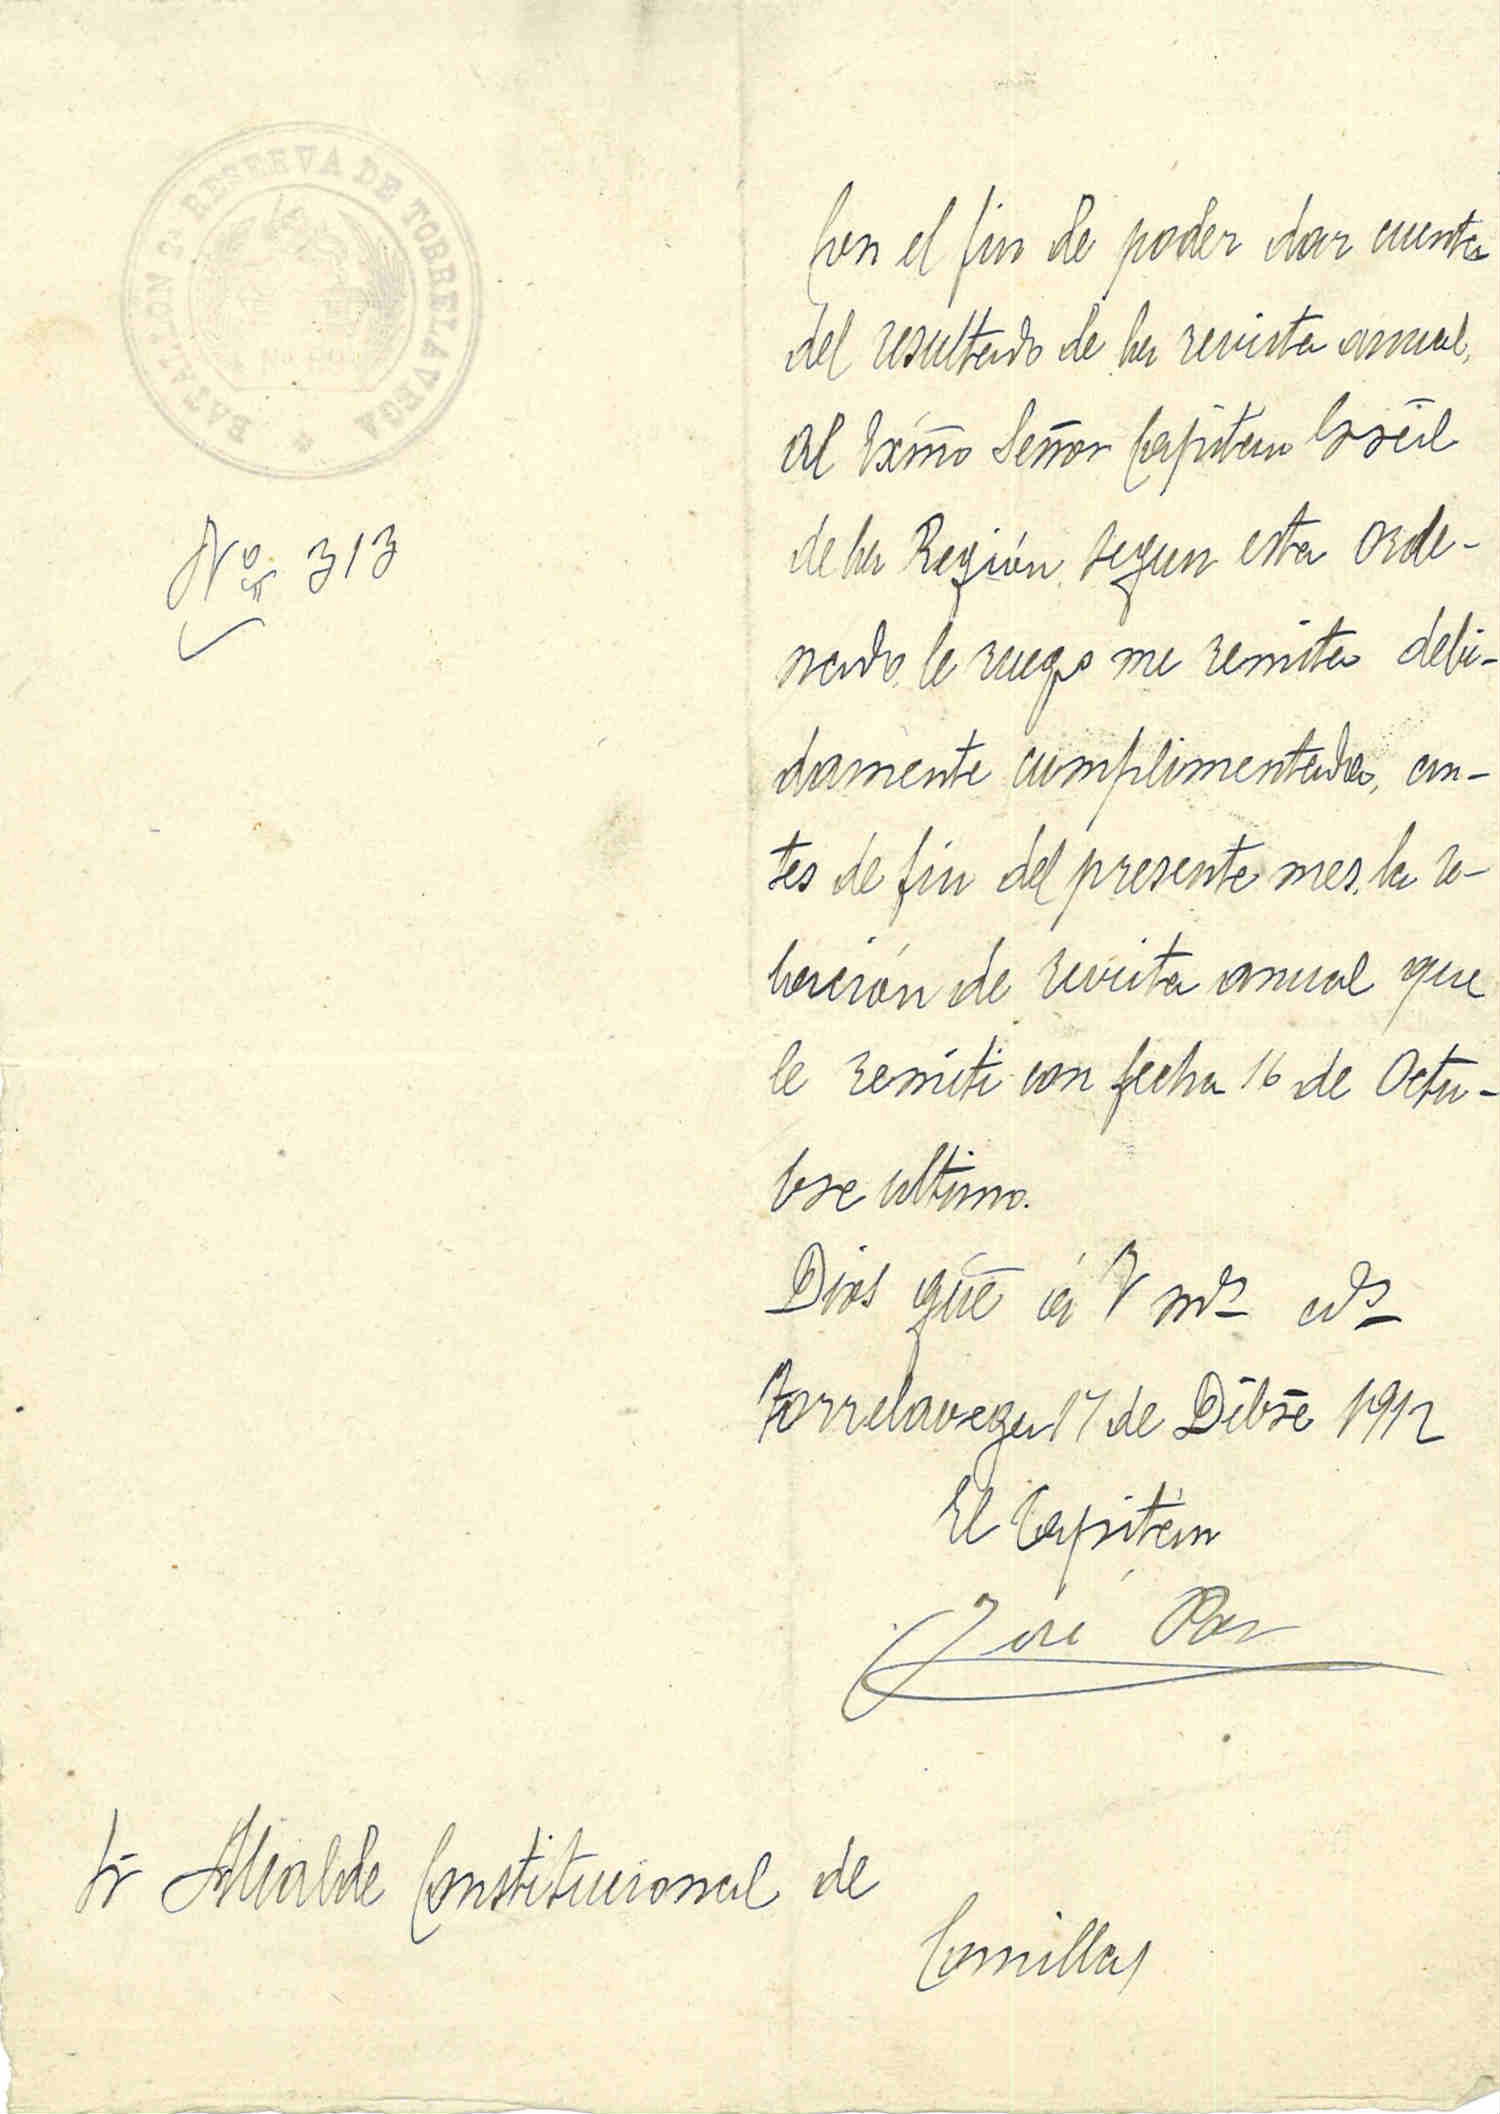 BATALLON 2ª RESERVA DE TORRELAVEGA
Nº 313
Con el fin de poder dar cuenta
del resultado de la revista anual,
al Exmo Señor Capitan Gral
de la Región, segun esta orde-
nado, le ruego me remita debi-
damente cumplimentada, an-
tes de fin del presente mes, la re-
lación de revista anual que
le remiti con fecha 16 de Octu-
bre ultimo.
Dios gue á V ms as
Torrelavega 17 de Dibre 1912
El Capitán
José
Sr Alcalde Constitucional de
Comillas